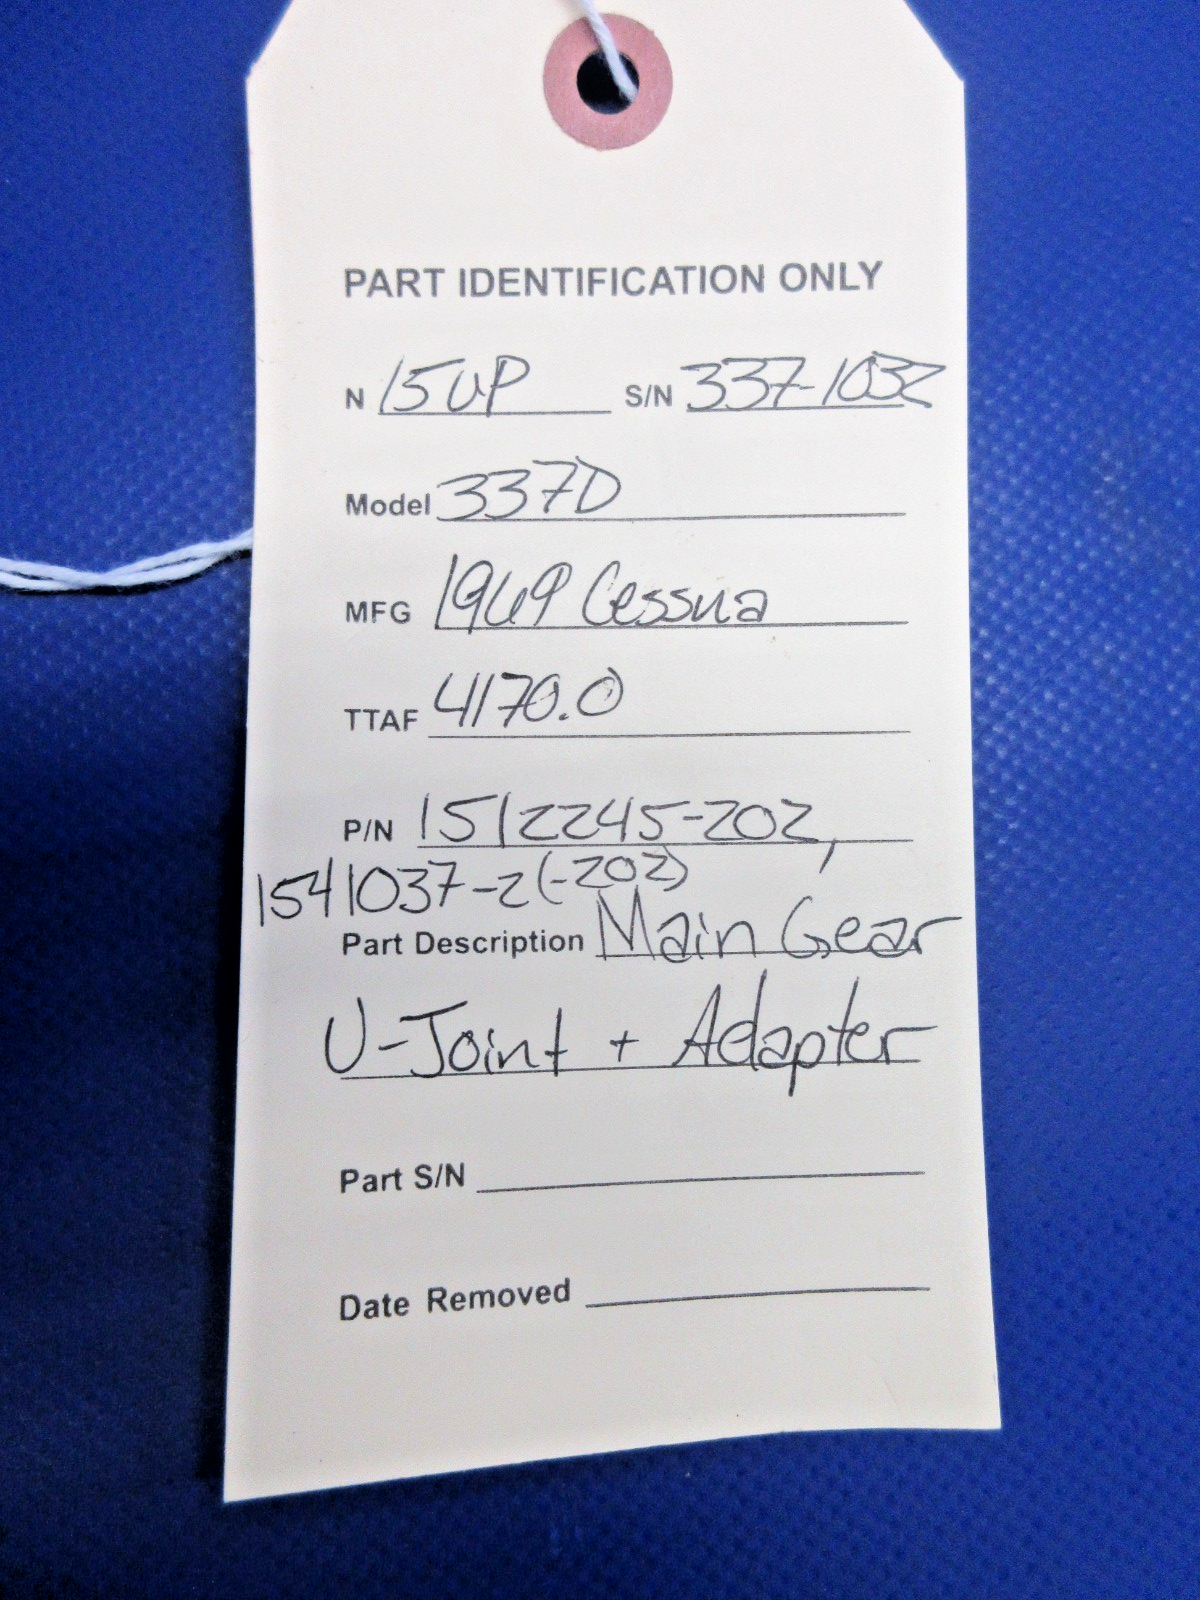 PART IDENTIFICATION ONLY
N 15UP S/N 337-1032
Model 337D
MFG 1969 Cessna
TTAF 4170.0
P/N 1512245-202,
1541037-2(-202)
Part Description Main Gear
U-Joint + Adapter
Part S/N
Date Removed